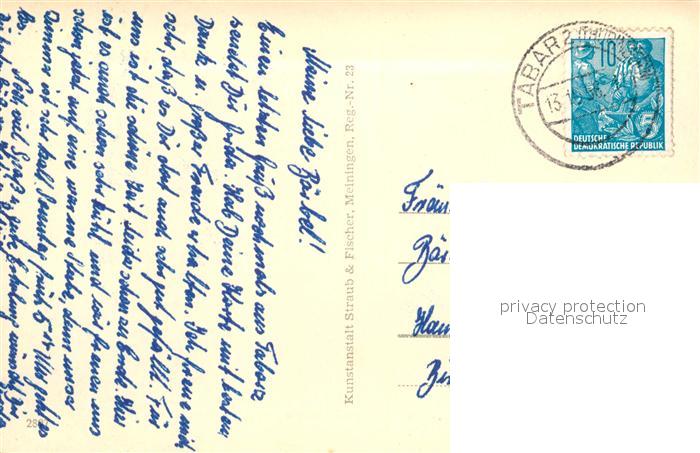 Meine liebe Bärbel!
Einen letzten Gruß nochmals aus Tabarz
sendet Dir Gerda. Hab Deine Karte mit bestem
Dank u. großer Freude erhalten. Ich freue mich
sehr, daß es Dir dort auch sehr gut gefällt. Für
uns ist die schöne Zeit leider schon zu Ende. Hier
ist es auch schon sehr kühl und wir freuen uns
schon jetzt auf eine warme Stube, denn unser
Zimmer ist sehr kalt. Sonntag früh
Noch viel Spaß
2887
Kunstanstalt Straub & Fischer, Meiningen, Reg.-Nr. 23
TABARZ (THÜR
13.
10
5
DEUTSCHE
DEMOKRATISCHE REPUBLIK
Fräu
Bär
Hau
privacy protection
Datenschutz